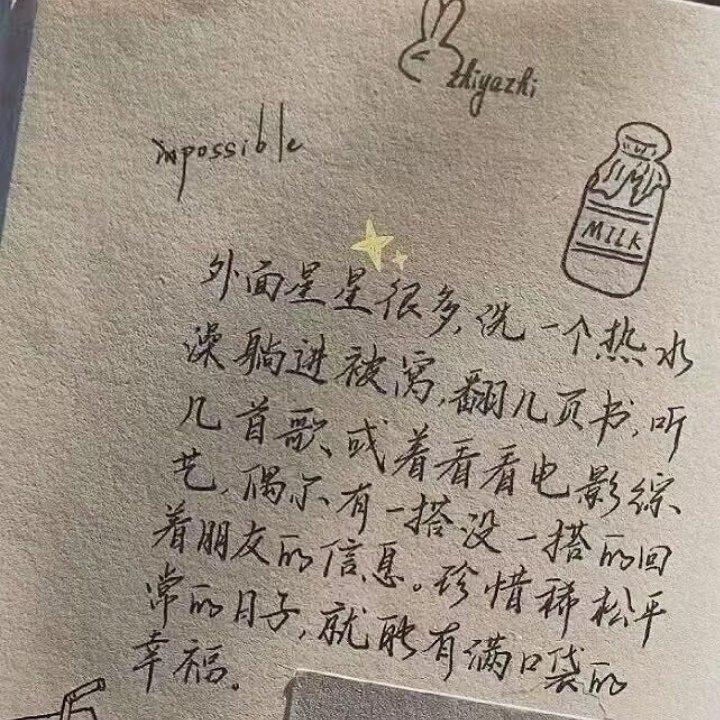 zhiyazhi
impossible
MILK
外面星星很多,洗一个热水
澡躺进被窝,翻几页书,听
几首歌、或着看看看电影综
艺,偶尔有一搭没一搭的回
着朋友的信息。珍惜稀松平
常的日子,就能有满口袋的
幸福.